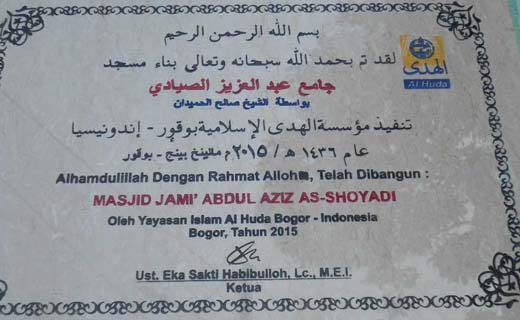 بسم الله الرحمن الرحيم
لقد تم بحمد الله سبحانه وتعالى بناء مسجد
الهدى
Al Huda
جامع عبد العزيز الصيادي
بواسطة الشيخ صالح الحميدان
تنفيذ مؤسسة الهدى الإسلامية بوقور - إندونيسيا
عام ١٤٣٦ هـ / ٢٠١٥ م ماليغ بينج - بوقور
Alhamdulillah Dengan Rahmat Alloh, Telah Dibangun :
MASJID JAMI' ABDUL AZIZ AS-SHOYADI
Oleh Yayasan Islam Al Huda Bogor - Indonesia
Bogor, Tahun 2015
Ust. Eka Sakti Habibulloh, Lc., M.E.I.
Ketua